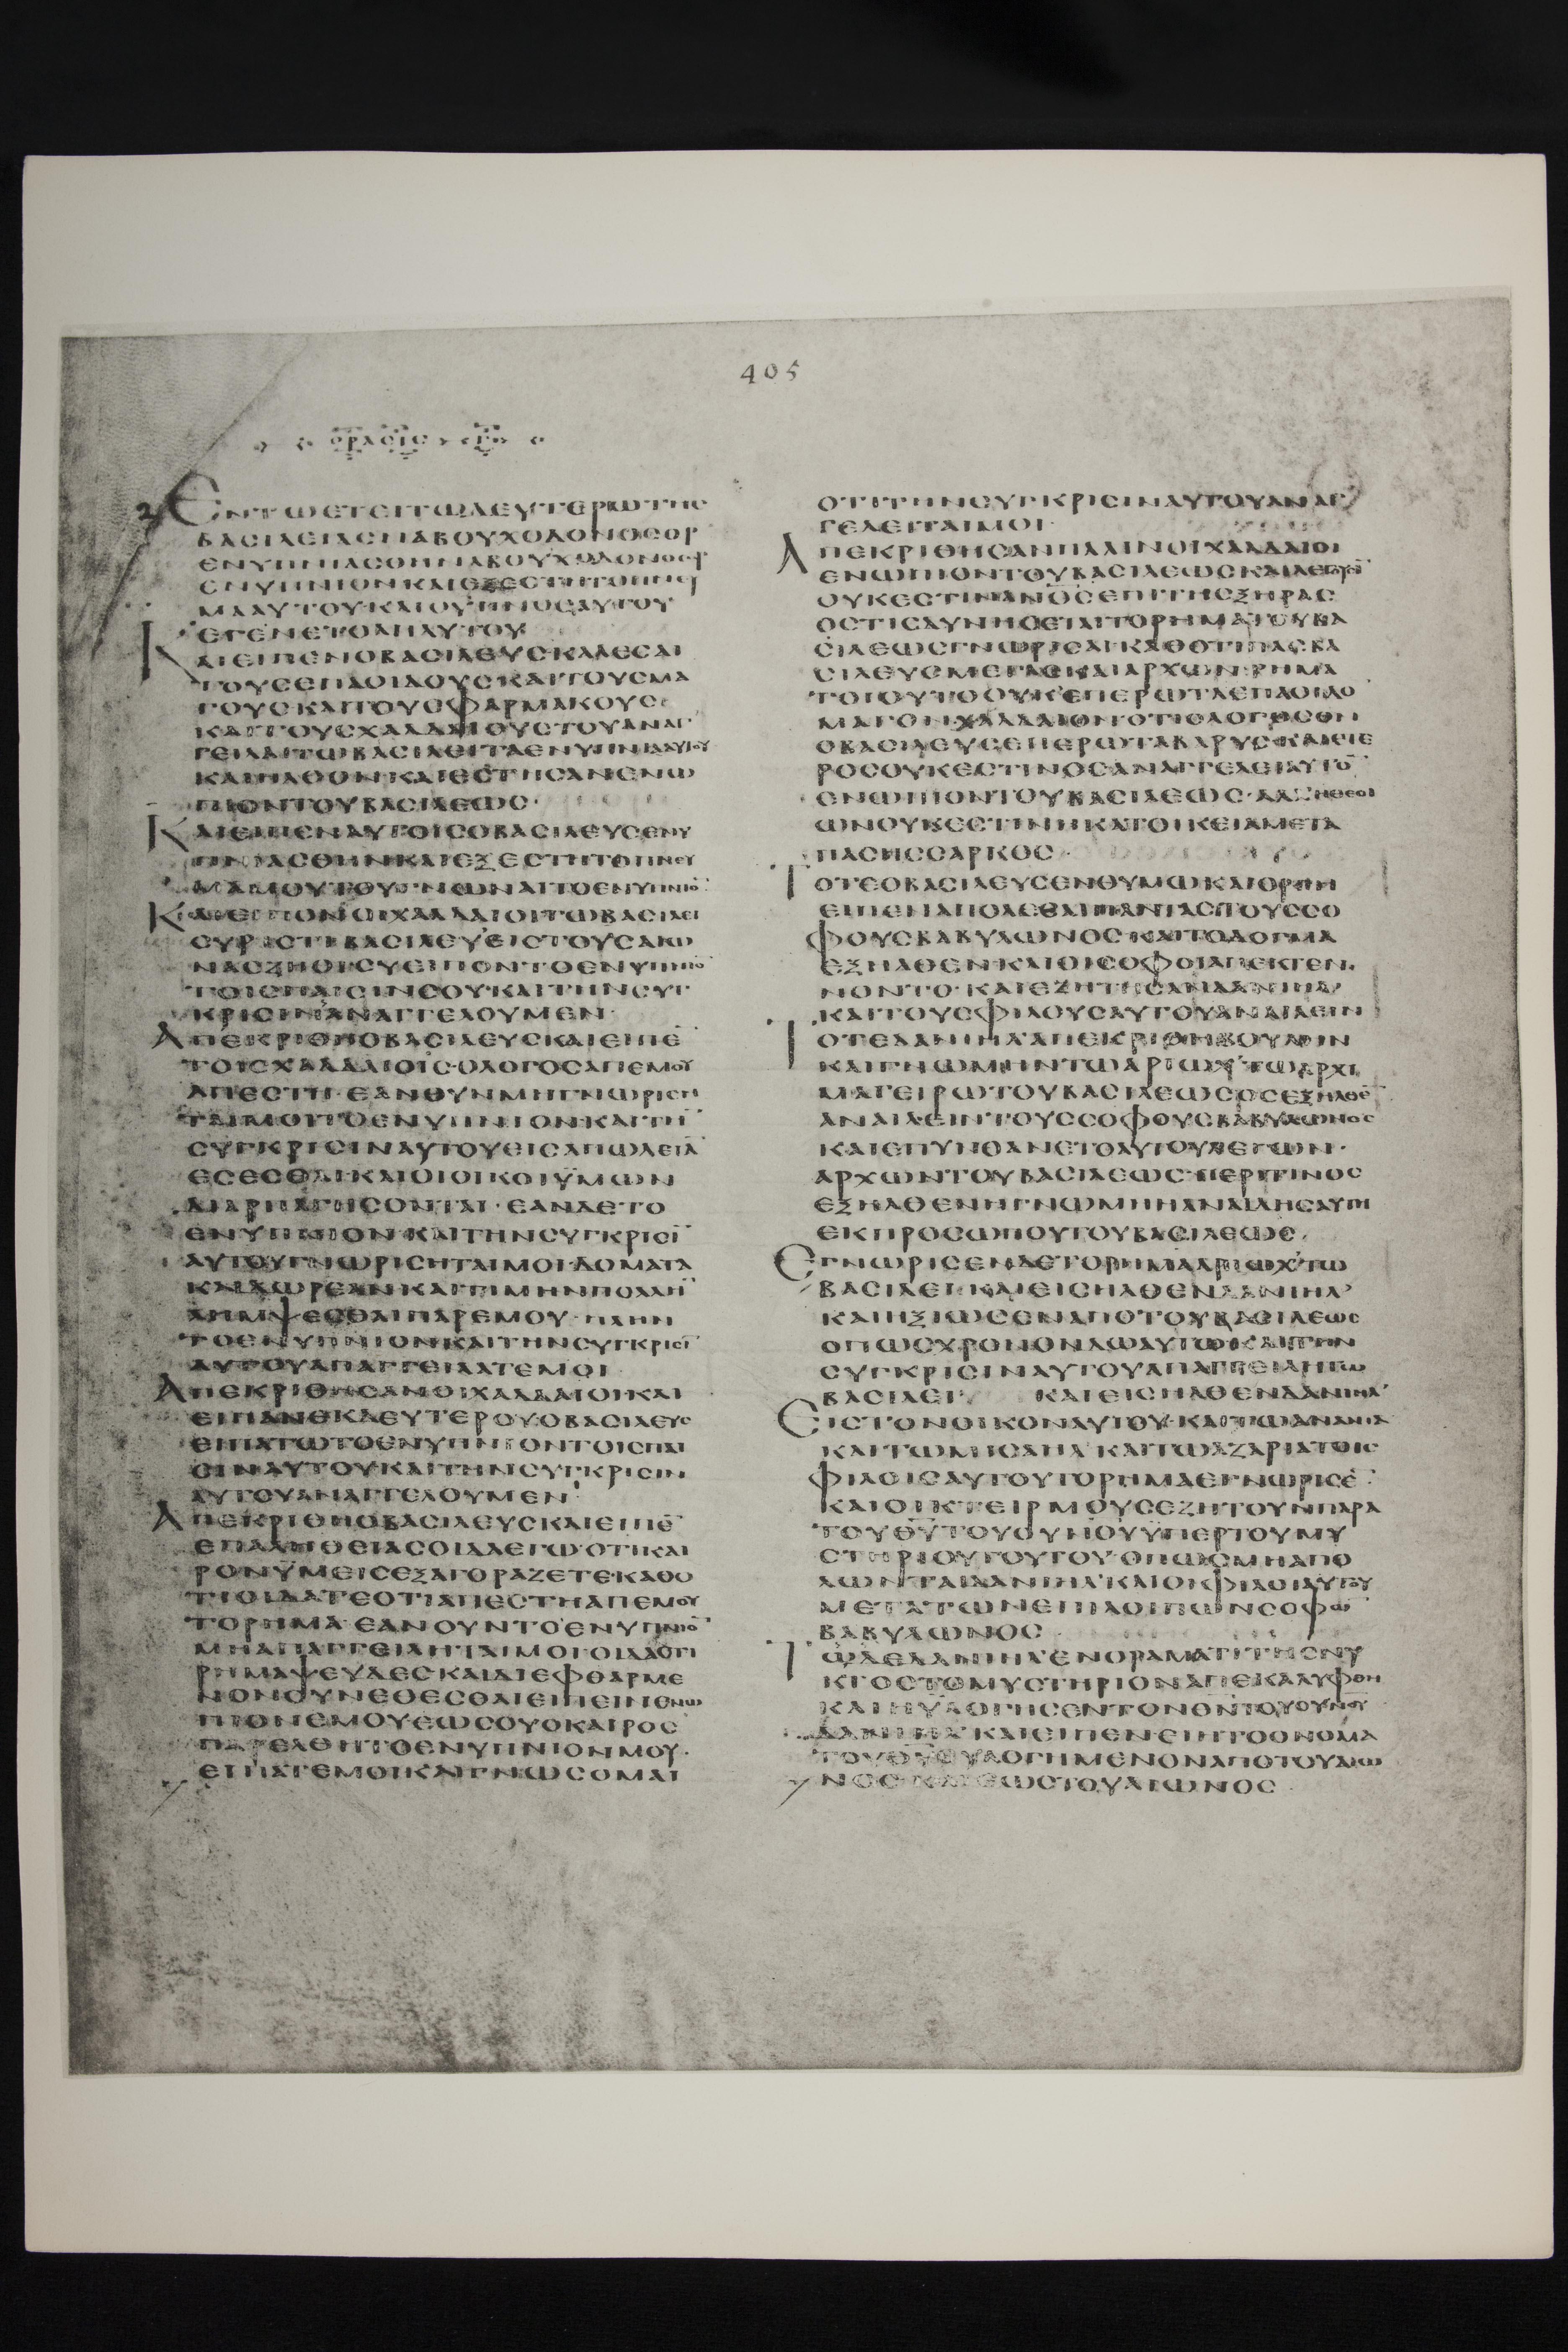 405
ορασις
2
ΕΝΤΩΕΤΕΙΤΩΔΕΥΤΕΡΩΤΗC
ΒΑCΙΛΕΙΑCΝΑΒΟΥΧΟΔΟΝΟCΟΡ
ΕΝΥΠΝΙΑCΘΗΝΑΒΟΥΧΟΔΟΝΟCΟΡ
ΕΝΥΠΝΙΟΝΚΑΙΕΞΕCΤΗΤΟΠΝΕΥ
ΜΑΑΥΤΟΥ·ΚΑΙΟΫΠΝΟCΑΥΤΟΥ
ΕΓΕΝΕΤΟΑΠΑΥΤΟΥ
ΚΑΙΕΙΠΕΝΟΒΑCΙΛΕΥCΚΑΛΕCΑΙ
ΤΟΥCΕΠΑΟΙΔΟΥCΚΑΙΤΟΥCΜΑ
ΓΟΥCΚΑΙΤΟΥCΦΑΡΜΑΚΟΥC·
ΚΑΙΤΟΥCΧΑΛΔΑΙΟΥCΤΟΥΑΝΑΓ
ΓΕΙΛΑΙΤΩΒΑCΙΛΕΙΤΑΕΝΥΠΝΙΑΑΥΤΟΥ
ΚΑΙΗΛΘΟΝΚΑΙΕCΤΗCΑΝΕΝΩ
ΠΙΟΝΤΟΥΒΑCΙΛΕΩC·
ΚΑΙΕΙΠΕΝΑΥΤΟΙCΟΒΑCΙΛΕΥCΕΝΥ
ΠΝΙΑCΘΗΝΚΑΙΕΞΕCΤΗΤΟΠΝΕΥ
ΜΑΜΟΥΤΟΥΓΝΩΝΑΙΤΟΕΝΥΠΝΙΟ̄
ΚΑΙΕΙΠΟΝΟΙΧΑΛΔΑΙΟΙΤΩΒΑCΙΛΕΙ
CΥΡΙCΤΙΒΑCΙΛΕΥΕΙCΤΟΥCΑΙΩ
ΝΑCΖΗΘΙCΥΕΙΠΟΝΤΟΕΝΥΠΝΙΟ̄
ΤΟΙCΠΑΙCΙΝCΟΥ·ΚΑΙΤΗΝCΥΓ
ΚΡΙCΙΝΑΝΑΓΓΕΛΟΥΜΕΝ·
ΑΠΕΚΡΙΘΗΟΒΑCΙΛΕΥCΚΑΙΕΙΠΕ̄
ΤΟΙCΧΑΛΔΑΙΟΙC·ΟΛΟΓΟCΑΠΕΜΟΥ
ΑΠΕCΤΗ·ΕΑΝΟΥΝΜΗΓΝΩΡΙCΗ
ΤΑΙΜΟΙΤΟΕΝΥΠΝΙΟΝΚΑΙΤΗ̄
CΥΓΚΡΙCΙΝΑΥΤΟΥΕΙCΑΠΩΛΕΙᾹ
ΕCΕCΘΑΙ·ΚΑΙΟΙΟΙΚΟΙΫΜΩΝ
ΔΙΑΡΠΑΓΗCΟΝΤΑΙ·ΕΑΝΔΕΤΟ
ΕΝΥΠΝΙΟΝ·ΚΑΙΤΗΝCΥΓΚΡΙCῙ
ΑΥΤΟΥΓΝΩΡΙCΗΤΑΙΜΟΙ·ΔΟΜΑΤΑ
ΚΑΙΔΩΡΕΑΝΚΑΙΤΙΜΗΝΠΟΛΛΗ̄
ΛΗΜΨΕCΘΑΙΠΑΡΕΜΟΥ·ΠΛΗΝ
ΤΟΕΝΥΠΝΙΟΝΚΑΙΤΗΝCΥΓΚΡΙCῙ
ΑΥΤΟΥΑΠΑΓΓΕΙΛΑΤΕΜΟΙ
ΑΠΕΚΡΙΘΗCΑΝΟΙΧΑΛΔΑΙΟΙΚΑΙ
ΕΙΠΑΝΕΚΔΕΥΤΕΡΟΥΟΒΑCΙΛΕΥC
ΕΙΠΑΤΩΤΟΕΝΥΠΝΙΟΝΤΟΙCΠΑΙ
CΙΝΑΥΤΟΥΚΑΙΤΗΝCΥΓΚΡΙCΙΝ
ΑΥΤΟΥΑΝΑΓΓΕΛΟΥΜΕΝ
ΑΠΕΚΡΙΘΗΟΒΑCΙΛΕΥCΚΑΙΕΙΠΕ̄
ΕΠΑΛΗΘΕΙΑCΟΙΔΑΕΓΩ·ΟΤΙΚΑΙ
ΡΟΝΫΜΕΙCΕΞΑΓΟΡΑΖΕΤΕ·ΚΑΘΟ
ΤΙΟΙΔΑΤΕΟΤΙΑΠΕCΤΗΑΠΕΜΟΥ
ΤΟΡΗΜΑ·ΕΑΝΟΥΝΤΟΕΝΥΠΝΙΟ̄
ΜΗΑΠΑΓΓΕΙΛΗΤΑΙΜΟΙ·ΟΙΔΑΟΤΙ
ΡΗΜΑΨΕΥΔΕCΚΑΙΔΙΕΦΘΑΡΜΕ
ΝΟΝCΥΝΕΘΕCΘΑΙΕΙΠΕΙΝΕΝΩ
ΠΙΟΝΕΜΟΥΕΩCΟΥΟΚΑΙΡΟC
ΠΑΡΕΛΘΗΤΟΕΝΥΠΝΙΟΝΜΟΥ·
ΕΙΠΑΤΕΜΟΙΚΑΙΓΝΩCΟΜΑΙ
ΟΤΙΤΗΝCΥΓΚΡΙCΙΝΑΥΤΟΥΑΝΑΓ
ΓΕΛΕΙΤΑΙΜΟΙ·
ΑΠΕΚΡΙΘΗCΑΝΠΑΛΙΝΟΙΧΑΛΔΑΙΟΙ
ΕΝΩΠΙΟΝΤΟΥΒΑCΙΛΕΩCΚΑΙΛΕΓΟΥCῙ
ΟΥΚΕCΤΙΝΑΝΟCΕΠΙΤΗCΞΗΡΑC
ΟCΤΙCΔΥΝΗCΕΤΑΙΤΟΡΗΜΑΤΟΥΒΑ
CΙΛΕΩCΓΝΩΡΙCΑΙ·ΚΑΘΟΤΙΠΑCΒΑ
CΙΛΕΥCΜΕΓΑCΚΑΙΑΡΧΩΝ·ΡΗΜΑ
ΤΟΙΟΥΤΟΟΥΚΕΠΕΡΩΤΑΕΠΑΟΙΔΟ
ΜΑΓΟΝΧΑΛΔΑΙΟΝΟΤΙΟΛΟΓΟCΟΝ
ΟΒΑCΙΛΕΥCΕΠΕΡΩΤΑΒΑΡΥC·ΚΑΙΕΤΕ
ΡΟCΟΥΚΕCΤΙΝΟCΑΝΑΓΓΕΛΕΙΑΥΤΟ̄
ΕΝΩΠΙΟΝΤΟΥΒΑCΙΛΕΩC·ΑΛΛΗΘΕΟΙ
ΩΝΟΥΚΕCΤΙΝΗΚΑΤΟΙΚΕΙΑΜΕΤΑ
ΠΑCΗCCΑΡΚΟC·
ΤΟΤΕΟΒΑCΙΛΕΥCΕΝΘΥΜΩΚΑΙΟΡΓΗ
ΕΙΠΕΝΑΠΟΛΕCΑΙΠΑΝΤΑCΤΟΥCCΟ
ΦΟΥCΒΑΒΥΛΩΝΟC·ΚΑΙΤΟΔΟΓΜΑ
ΕΞΗΛΘΕΝ·ΚΑΙΟΙCΟΦΟΙΑΠΕΚΤΕΝ
ΝΟΝΤΟ·ΚΑΙΕΖΗΤΗCΑΝΔΑΝΙΗΛ
ΚΑΙΤΟΥCΦΙΛΟΥCΑΥΤΟΥΑΝΑΙΛΕΙΝ
ΤΟΤΕΔΑΝΙΗΛΑΠΕΚΡΙΘΗΒΟΥΛΗΝ
ΚΑΙΓΝΩΜΗΝΤΩΑΡΙΩΧΤΩΑΡΧΙ
ΜΑΓΕΙΡΩΤΟΥΒΑCΙΛΕΩCΟCΕΞΗΛΘΕ̄
ΑΝΑΙΛΕΙΝΤΟΥCCΟΦΟΥCΒΑΒΥΛΩΝΟC
ΚΑΙΕΠΥΝΘΑΝΕΤΟΑΥΤΟΥΛΕΓΩΝ·
ΑΡΧΩΝΤΟΥΒΑCΙΛΕΩC·ΠΕΡΙΤΙΝΟC
ΕΞΗΛΘΕΝΗΓΝΩΜΗΗΑΝΑΙΔΗCΑΥΤΗ
ΕΚΠΡΟCΩΠΟΥΤΟΥΒΑCΙΛΕΩC·
ΕΓΝΩΡΙCΕΝΔΕΤΟΡΗΜΑΑΡΙΩΧΤΩ
ΒΑCΙΛΕΙ·ΚΑΙΕΙCΗΛΘΕΝΔΑΝΙΗΛ
ΚΑΙΗΞΙΩCΕΝΑΠΟΤΟΥΒΑCΙΛΕΩC
ΟΠΩCΧΡΟΝΟΝΔΩΑΥΤΩΚΑΙΤΗΝ
CΥΓΚΡΙCΙΝΑΥΤΟΥΑΠΑΓΓΕΙΛΗΤΩ
ΒΑCΙΛΕΙ· ΚΑΙΕΙCΗΛΘΕΝΔΑΝΙΗΛ
ΕΙCΤΟΝΟΙΚΟΝΑΥΤΟΥ·ΚΑΙΤΩΑΝΑΝΙΑ
ΚΑΙΤΩΜΙCΑΗΛΚΑΙΤΩΑΖΑΡΙΑΤΟΙC
ΦΙΛΟΙCΑΥΤΟΥΤΟΡΗΜΑΕΓΝΩΡΙCΕ̄
ΚΑΙΟΙΚΤΕΙΡΜΟΥCΕΖΗΤΟΥΝΠΑΡΑ
ΤΟΥΘ̄Ῡ̄ΤΟΥΟΥΝΟΥΫΠΕΡΤΟΥΜΥ
CΤΗΡΙΟΥΤΟΥΤΟΥ·ΟΠΩCΜΗΑΠΟ
ΛΩΝΤΑΙΔΑΝΙΗΛΚΑΙΟΙΦΙΛΟΙΑΥΤΟΥ
ΜΕΤΑΤΩΝΕΠΙΛΟΙΠΩΝCΟΦΩ̄
ΒΑΒΥΛΩΝΟC·
ΤΩΔΕΔΑΝΙΗΛΕΝΟΡΑΜΑΤΙΤΗCΝΥ
ΚΤΟCΤΟΜΥCΤΗΡΙΟΝΑΠΕΚΑΛΥΦΘΗ
ΚΑΙΗΥΛΟΓΗCΕΝΤΟΝΘΝΤΟΥΟΥΝΟΥ
ΔΑΝΙΗΛΚΑΙΕΙΠΕΝ·ΕΙΗΤΟΟΝΟΜΑ
ΤΟΥΘ̄Ῡ̄ΕΥΛΟΓΗΜΕΝΟΝΑΠΟΤΟΥΑΙΩ
ΝΟC·ΚΑΙΕΩCΤΟΥΑΙΩΝΟC·